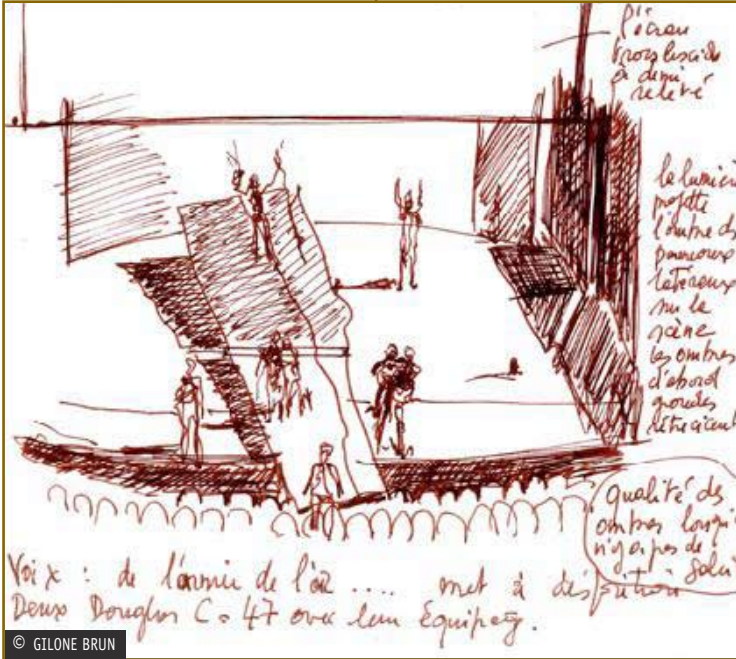 l'écran
translucide
à demi
relevé
la lumière
projette
l'ombre des
panneaux
latéraux
sur la
scène
les ombres
d'abord
grandes
rétrécissent
Qualité des
ombres lorsqu'il
n'y a pas de
soleil
Voix : de l'armée de l'air .... met à disposition
Deux Douglas C. 47 avec leur équipage.
© GILONE BRUN